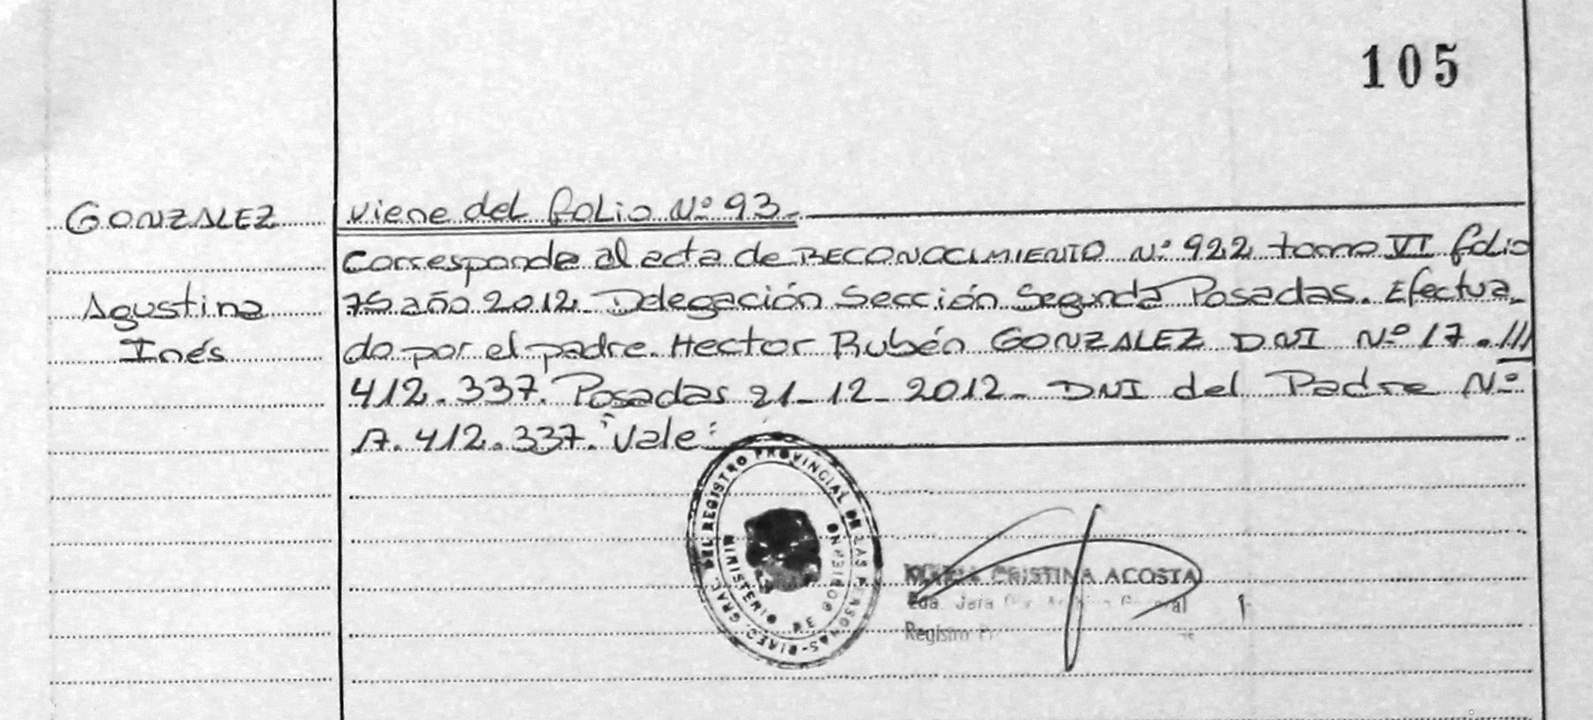 105
GONZALEZ
Agustina
Inés
viene del folio Nº 93.
Corresponde al acta de RECONOCIMIENTO Nº 922 tomo VI folio
75 año 2012. Delegación Sección Segunda Posadas. Efectua_
do por el padre. Hector Rubén GONZALEZ DNI Nº 17.///
412.337. Posadas 21-12-2012- DNI del Padre Nº
17.412.337. "Vale":
DIREC. GRAL. DEL REGISTRO PROVINCIAL DE LAS PERSONAS-
MINISTERIO DE GOBIERNO
MARIA CRISTINA ACOSTA
Registro